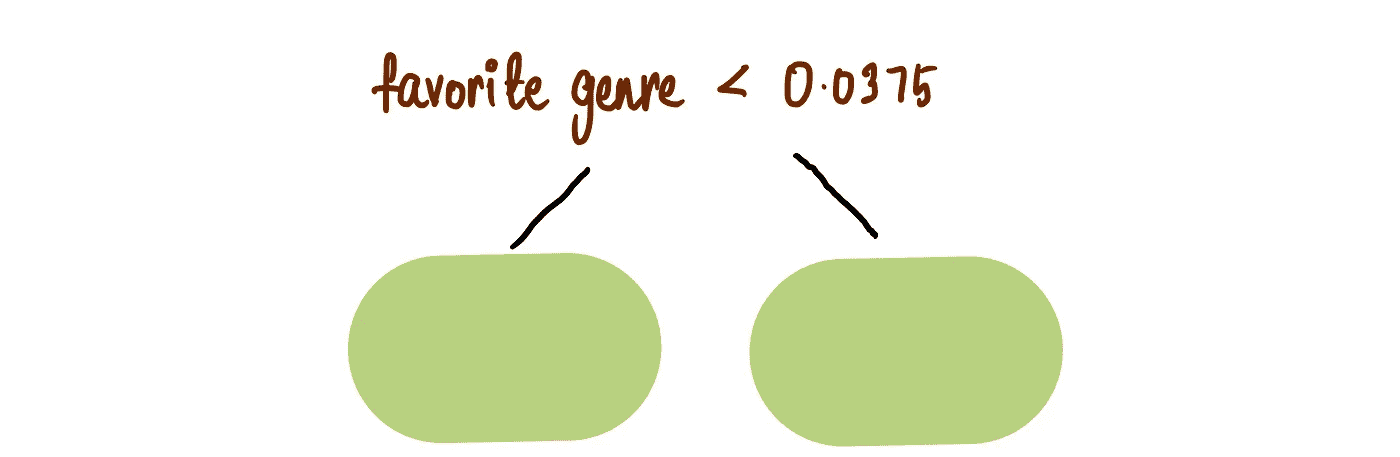 favorite genre < 0.0375